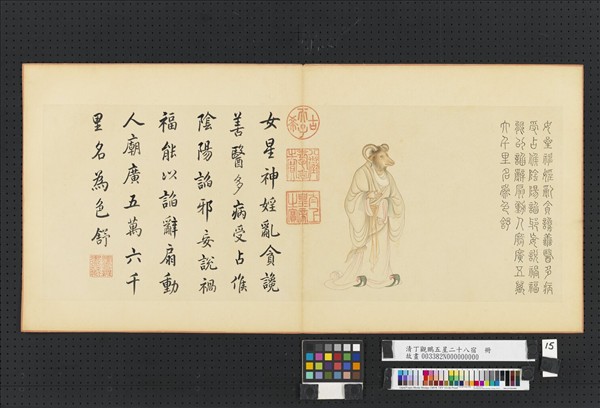 女星神婬亂貪讒善醫多病
受占候陰陽諂邪妄說禍福
能以諂辭扇動人廟廣五萬
六千里名為色舒
古希天子
女星神婬亂貪讒
善醫多病受占候
陰陽諂邪妄說禍
福能以諂辭扇動
人廟廣五萬六千
里名為色舒
清丁觀鵬五星二十八宿 冊
故畫 003382N000000000
15